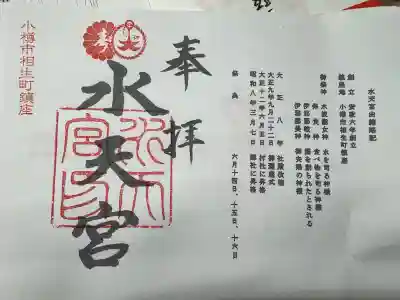 水天宮由緒略記
創立 安政六年創立
鎮座地 小樽市相生町鎮座
御祭神 水波能女神 水を司る神様
保食神 食べ物を司る神様
伊邪那岐神 国を創られたとされる
伊邪那美神 御夫婦の神様
大正八年 社殿改築
大正九年九月二十二日
大正十二年六月五日 村社に昇格
昭和八年三月七日 郷社に昇格
祭典 六月十四日、十五日、十六日
奉拝
水天宮
小樽市相生町鎮座